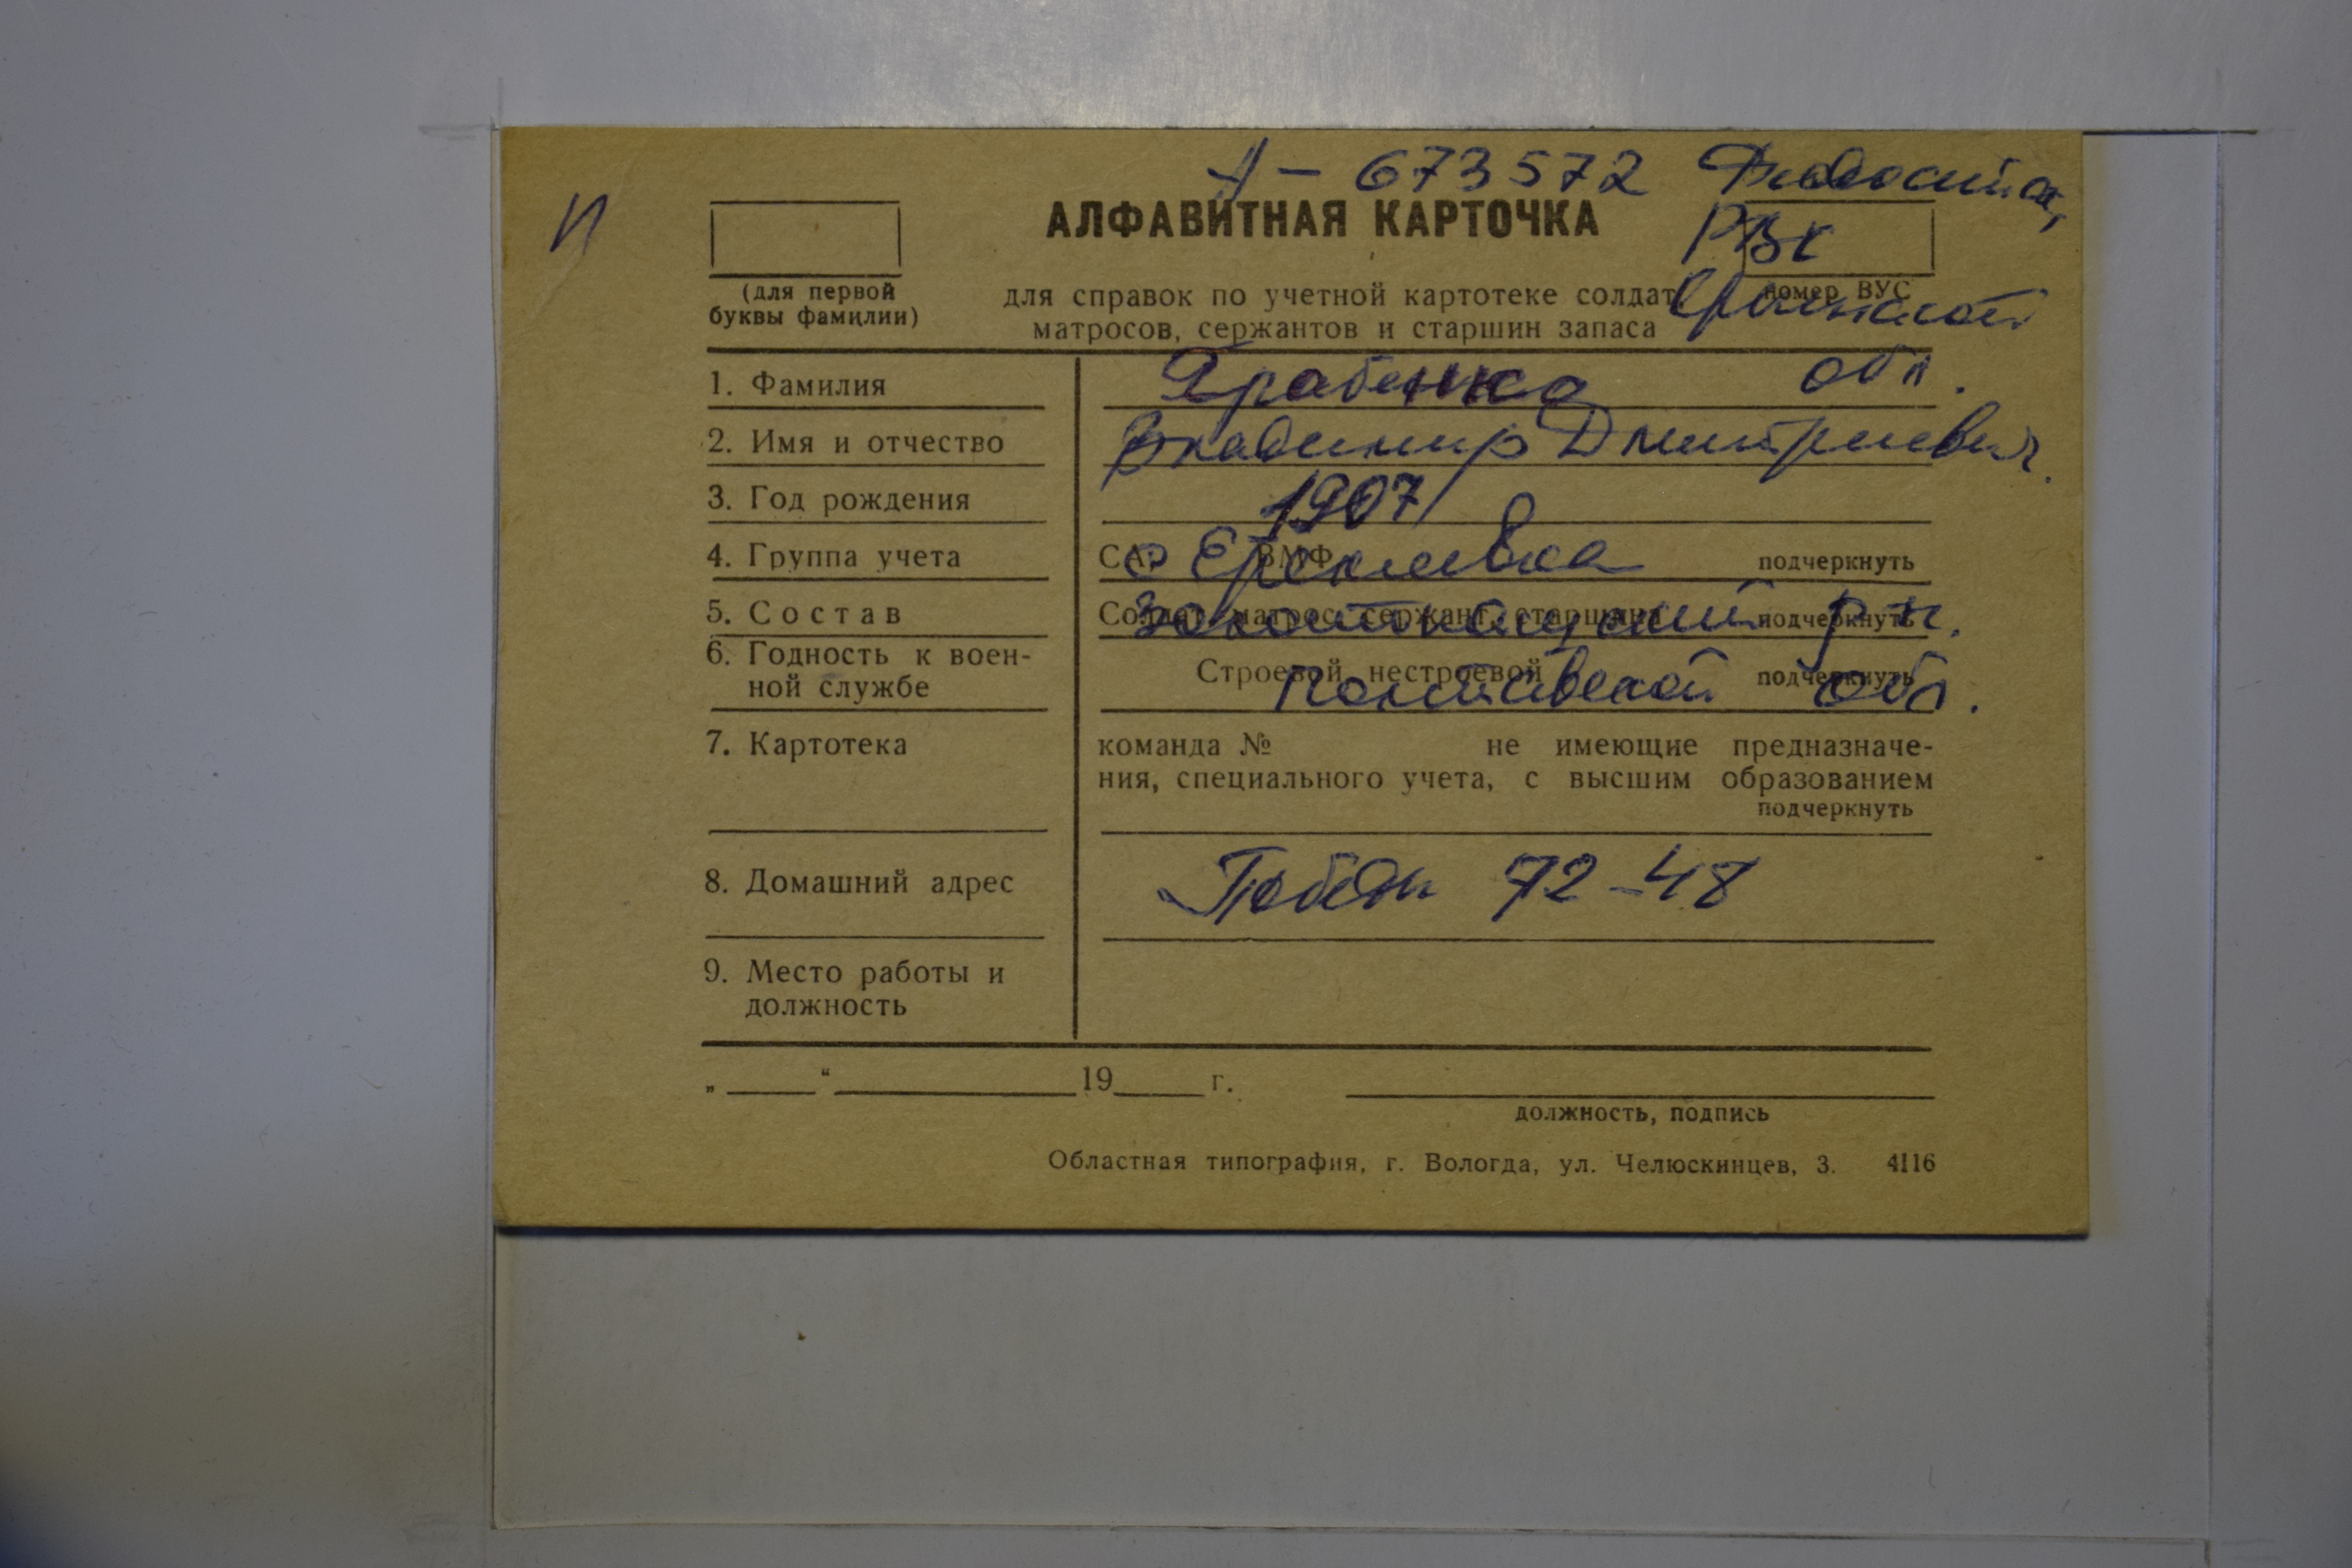 А - 673572
И
АЛФАВИТНАЯ КАРТОЧКА
РВК
(для первой
буквы фамилии)
для справок по учетной картотеке солдат,
матросов, сержантов и старшин запаса
номер ВУС
Крымской
обл.
1. Фамилия
2. Имя и отчество Владимир Дмитриевич.
3. Год рождения 1907
4. Группа учета СА, ВМФ подчеркнуть
с Еремеевка
5. Состав Солдат, матрос, сержант, старшина подчеркнуть
Золотоношский р-н.
6. Годность к воен-
ной службе Строевой, нестроевой подчеркнуть
Полтавской обл.
7. Картотека команда № не имеющие предназначе-
ния, специального учета, с высшим образованием
подчеркнуть
8. Домашний адрес Победы 72-48
9. Место работы и
должность
„ “ 19 г.
должность, подпись
Областная типография, г. Вологда, ул. Челюскинцев, 3. 4116